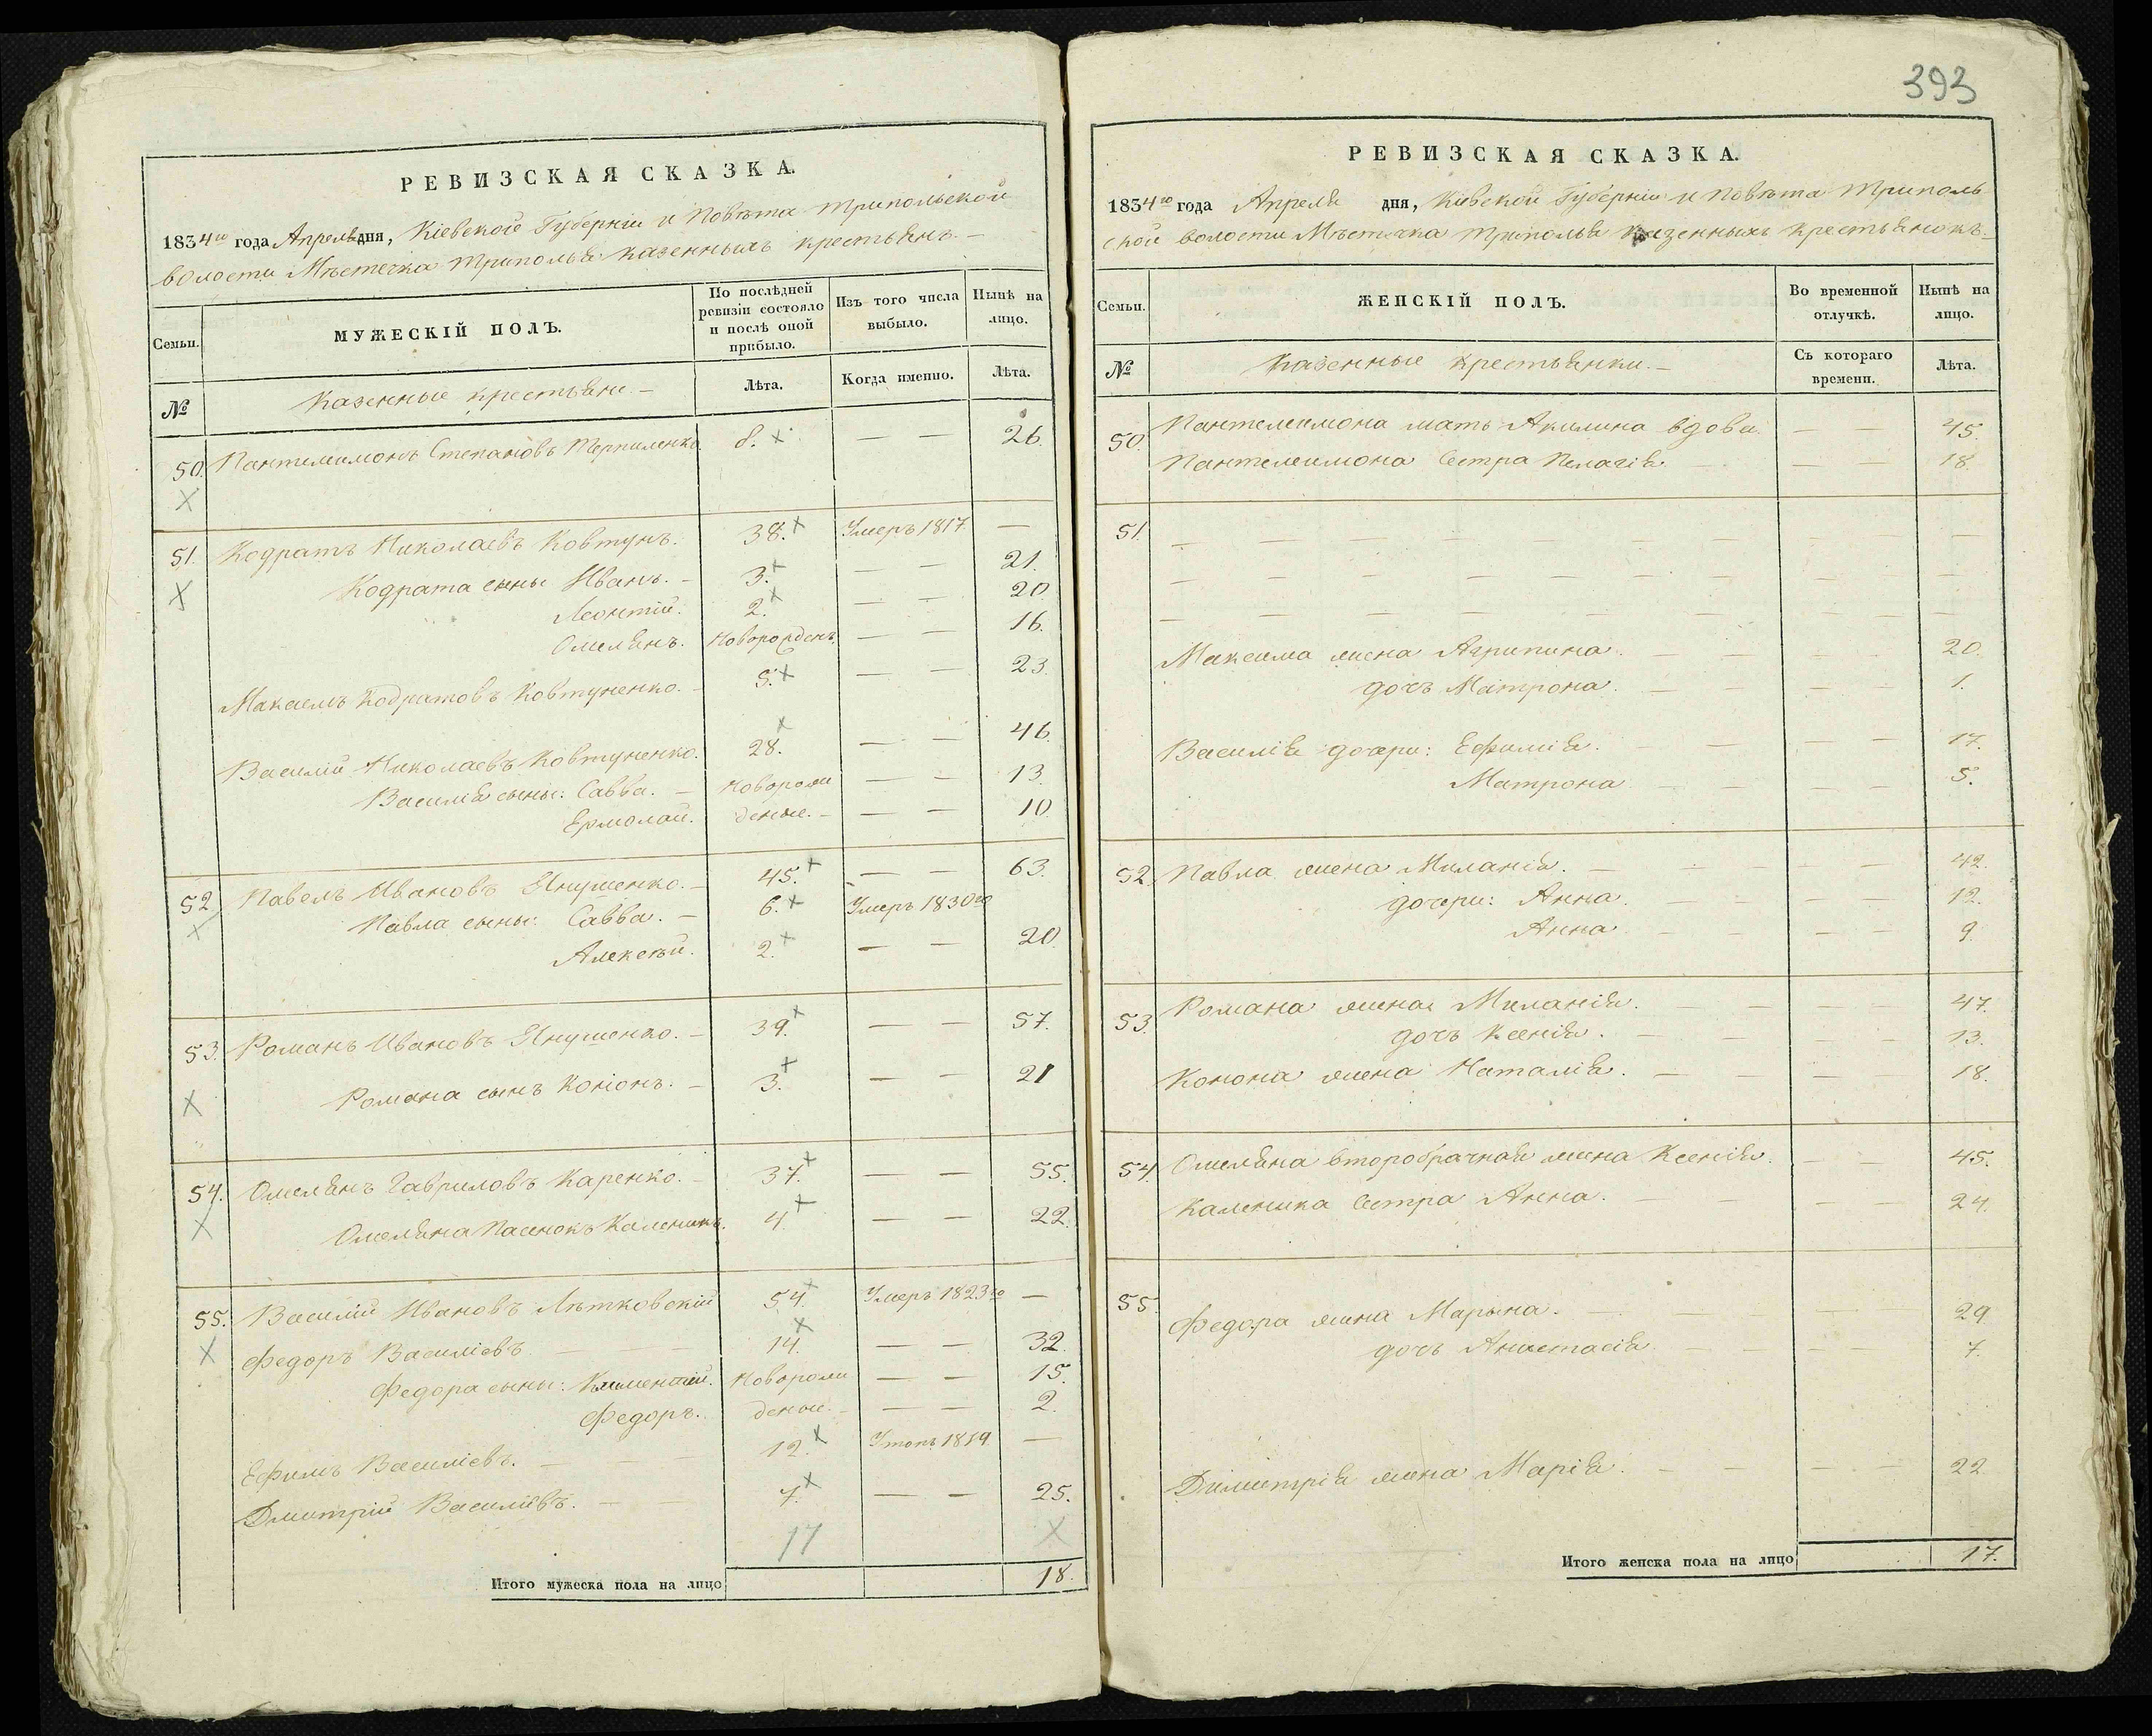 РЕВИЗСКАЯ СКАЗКА.
1834го года Апреля дня, Кіевской Губерніи и Повѣта Трипольской
волости Мѣстечка Триполья казенныхъ крестьянъ.
Семьи.
МУЖЕСКІЙ ПОЛЪ.
По послѣдней ревизіи состояло и послѣ оной прибыло.
Изъ того числа выбыло.
Нынѣ на лицо.
№
Казенные крестьяне.
Лѣта.
Когда именно.
Лѣта.
50. Пантелеимонъ Степановъ Терпиленко. 8. × — — 26.
×
51. Кодратъ Николаевъ Ковтунъ. 38. × Умеръ 1817. —
× Кодрата сыны Иванъ. 3. × — — 21.
Леонтій. 2. × — — 20.
Омелянъ. Новорожденъ. — — 16.
Максимъ Кодратовъ Ковтуненко. 5. × — — 23.
Василій Николаевъ Ковтуненко. 28. × — — 46.
Василія сыны: Савва. Новорож — — 13.
Ермолай. деные. — — 10.
52. Павелъ Ивановъ Янушенко. 45. × — — 63.
× Павла сыны: Савва. 6. × Умеръ 1830го
Алексѣй. 2. × — — 20.
53. Романъ Ивановъ Янушенко. 39. × — — 57.
× Романа сынъ Кононъ. 3. × — — 21
54. Омелянъ Гавриловъ Каренко. 37. × — — 55.
× Омеляна Пасенокъ Каленикъ. 4. × — — 22.
55. Василій Ивановъ Лѣтковскій 54. × Умеръ 1823го —
× Федоръ Василіевъ 14. × — — 32.
Федора сыны: Климентій. Новорож — — 15.
Федоръ. деные. — — 2.
Ефимъ Василіевъ. 12. × Утопъ 1819. —
Дмитрій Василіевъ. 7. × — — 25.
17 ×
Итого мужеска пола на лицо 18.
393
РЕВИЗСКАЯ СКАЗКА.
1834го года Апреля дня, Кіевской Губерніи и Повѣта Триполь
ской волости Мѣстечка Триполья казенныхъ крестьянокъ.
Семьи.
ЖЕНСКІЙ ПОЛЪ.
Во временной отлучкѣ.
Нынѣ на лицо.
№
Казенные крестьянки.
Съ котораго времени.
Лѣта.
50. Пантелеимона мать Акилина вдова. — — 45.
Пантелеимона Сестра Пелагія. — — 18.
51.
Максима жена Агрипина. — — 20.
дочь Матрона. — — 1.
Василія дочери: Ефимія. — — 17.
Матрона — — 5.
52. Павла жена Миланія. — — 42.
дочери: Анна. — — 12.
Анна — — 9.
53. Романа жена Миланія. — — 47.
дочь Ксенія. — — 13.
Конона жена Наталія. — — 18.
54. Омеляна второбрачная жена Ксенія. — — 45.
Каленика Сестра Анна. — — 24.
55. Федора жена Марына. — — 29
дочь Анастасія — — 7.
Димитрія жена Марія. — — 22
Итого женска пола на лицо 17.